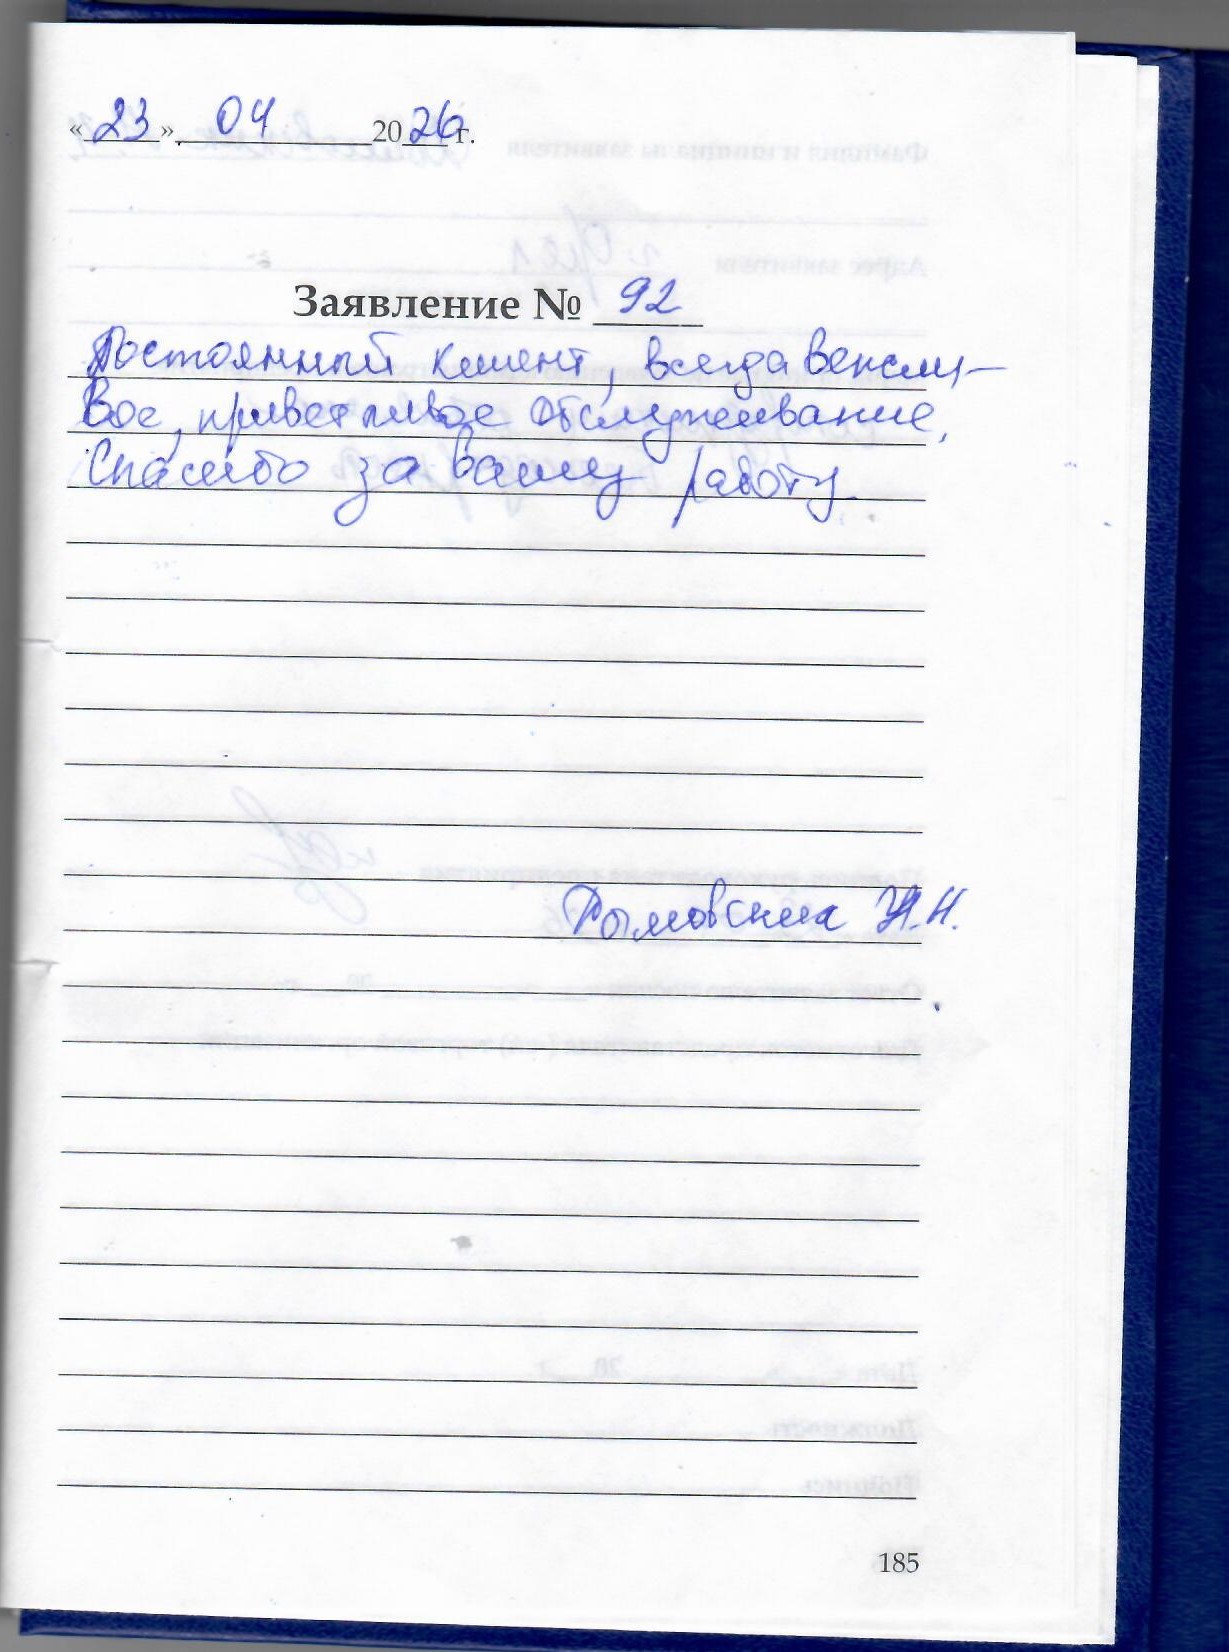 «23». 04 2026 г.
Заявление № 92
Постоянный клиент, всегда вежли-
вое, приветливое обслуживание,
Спасибо за вашу работу.
Н.
185